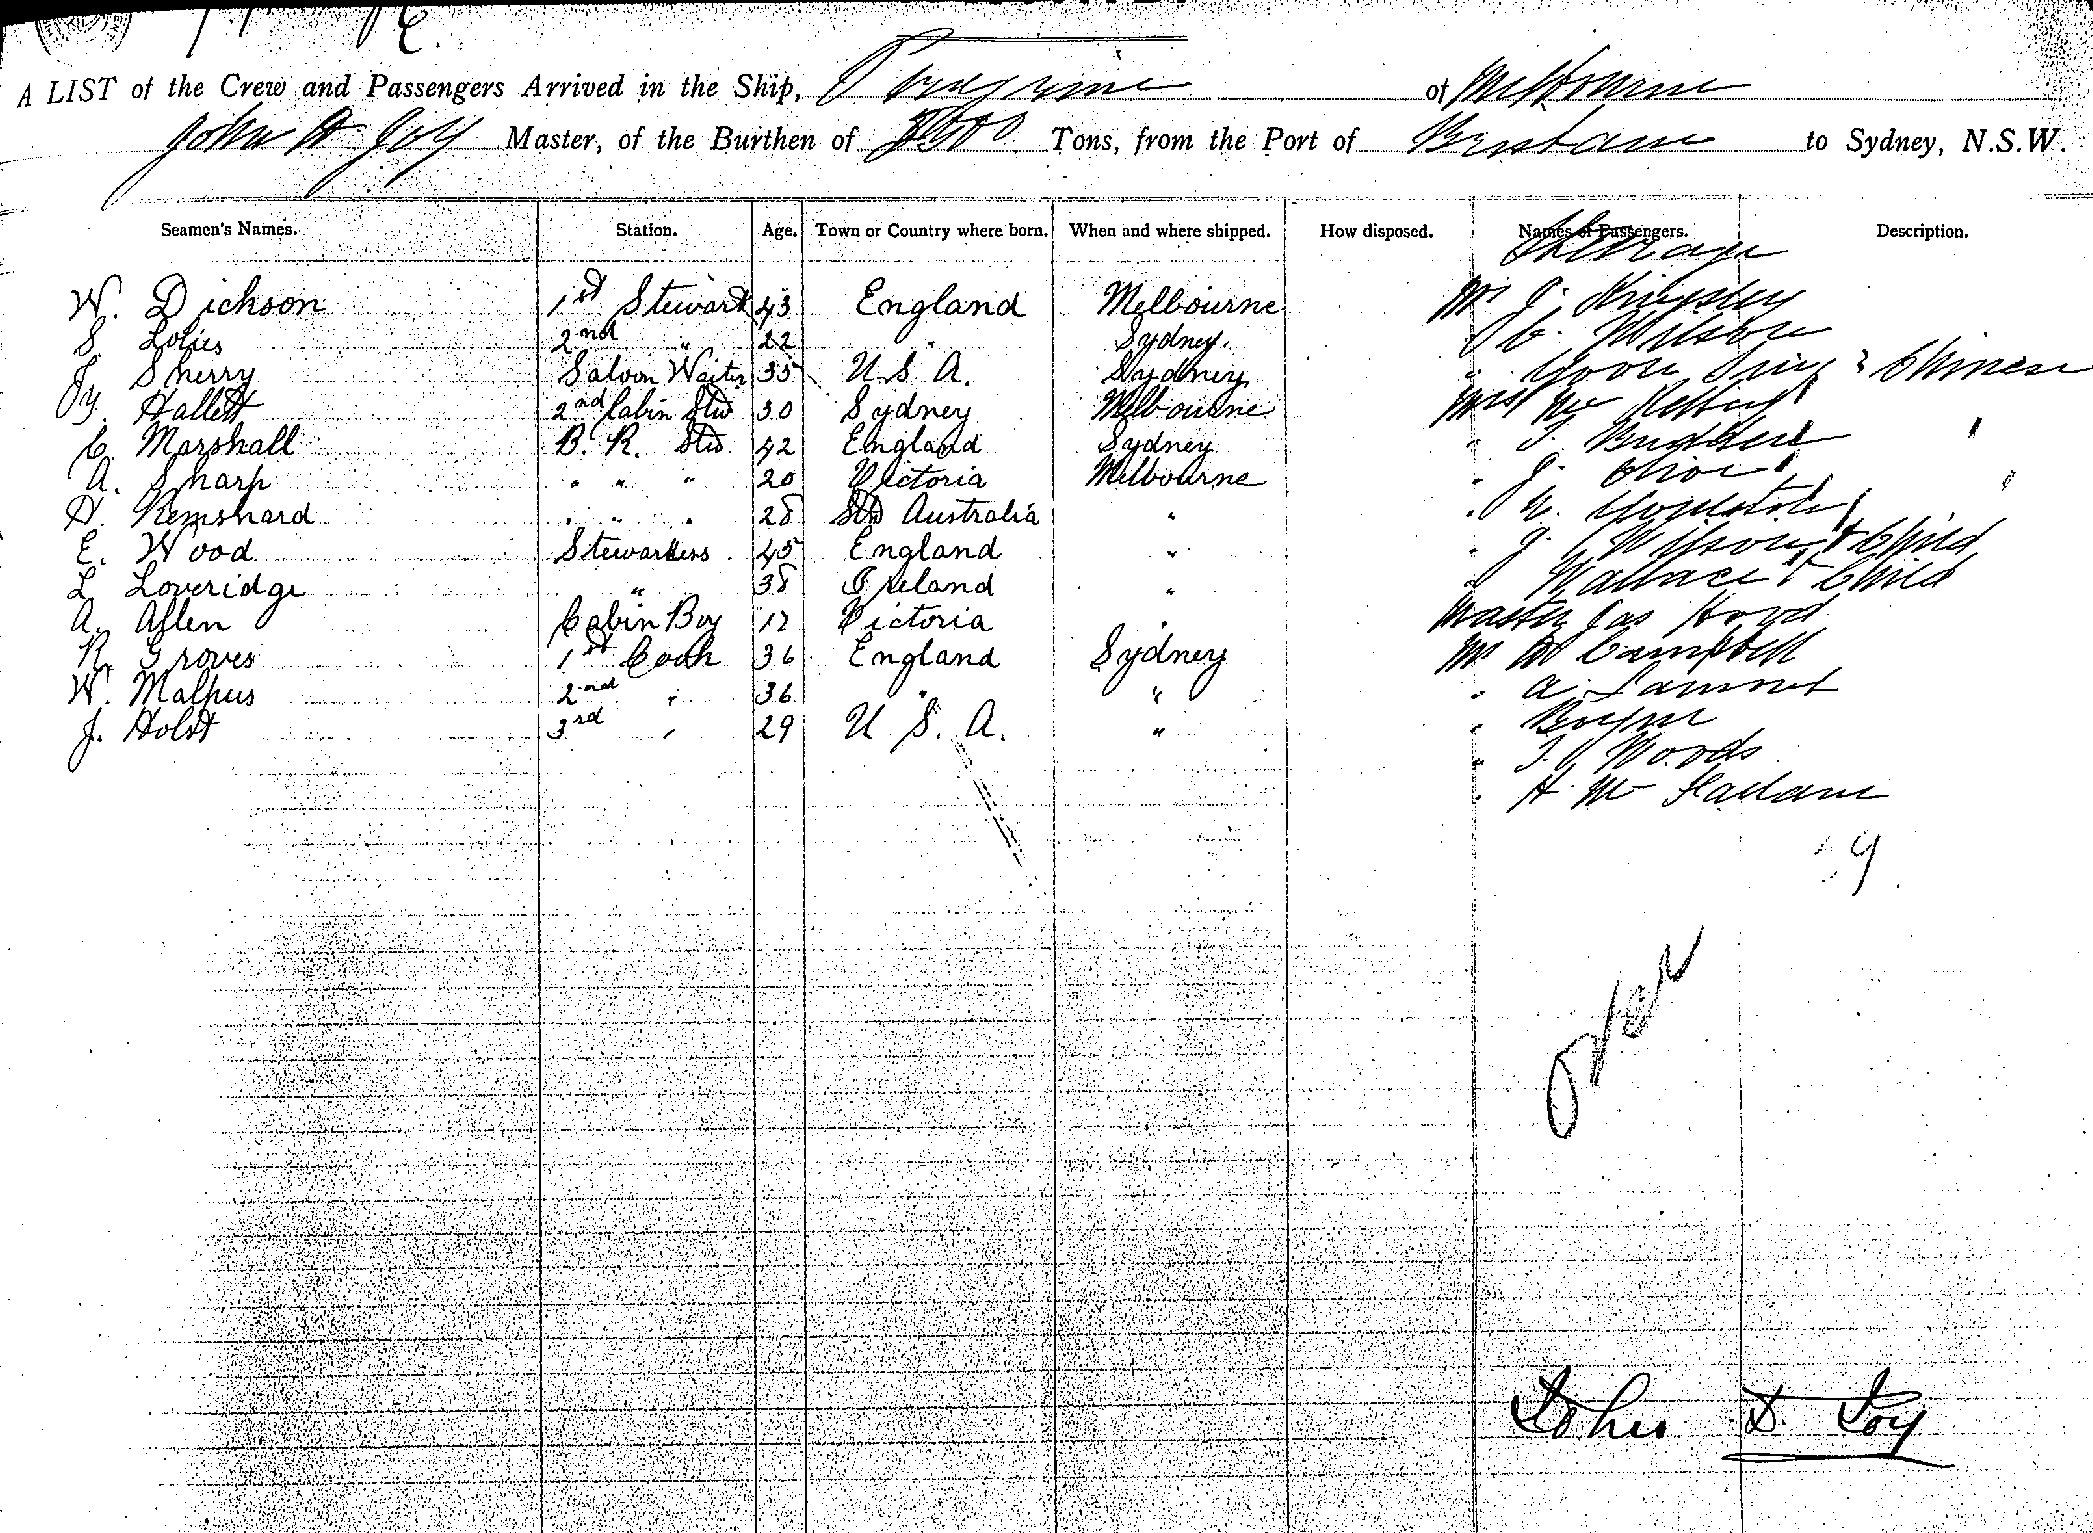 A LIST of the Crew and Passengers Arrived in the Ship, Peregrine of Melbourne
John D Joy Master, of the Burthen of Tons, from the Port of Brisbane to Sydney, N.S.W.
Seamen's Names. Station. Age. Town or Country where born. When and where shipped. How disposed. Names of Passengers. Description.
Steerage
W. Dickson 1st Steward 43 England Melbourne Mr J. Kingsley
S. 2nd " 22 " Sydney. " C. Wilson
Sherry Saloon Waiter 35 U S A. Sydney " Chinese
Hallett 2nd Cabin Std 30 Sydney Melbourne Mrs
C. Marshall B. R. Std. 42 England Sydney "
A. Sharp " " " 20 Victoria Melbourne " J.
H. Remshard " " " 28 Sth Australia " "
E. Wood Stewardess 45 England " " J. Wilson & Child
L. Loveridge " 38 Ireland " " Wallace & Child
A. Allen Cabin Boy 17 Victoria " Master Jas
R. Groves 1st Cook 36 England Sydney Mr Campbell
W. Malpus 2nd " 36 " " " A. Lamont
J. Holst 3rd " 29 U S. A. " "
" T. Woods
" H. Mc Farlane
Over
John D. Joy